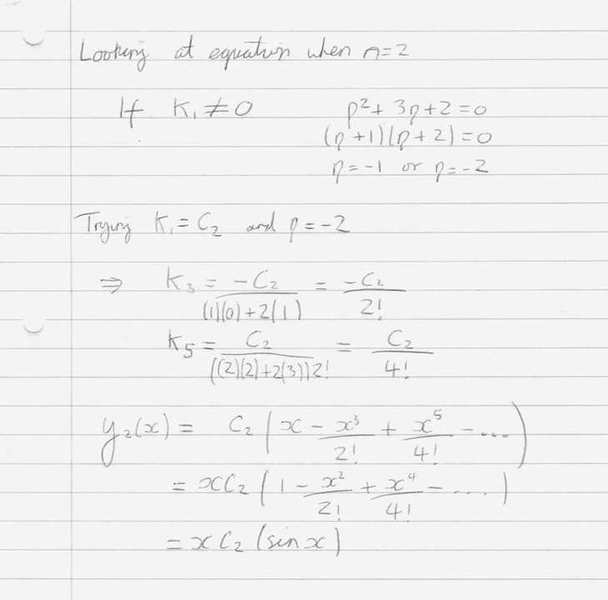 Looking at equation when n=2
If K₁ ≠ 0 p² + 3p + 2 = 0
(p+1)(p+2) = 0
p = -1 or p = -2
Trying K₁ = C₂ and p = -2
⇒ K₃ = -C₂/((1)(0)+2(1)) = -C₂/2!
K₅ = C₂/(((2)(2)+2(3))2!) = C₂/4!
y₂(x) = C₂(x - x³/2! + x⁵/4! - ....)
= xC₂(1 - x²/2! + x⁴/4! - ....)
= xC₂(sin x)